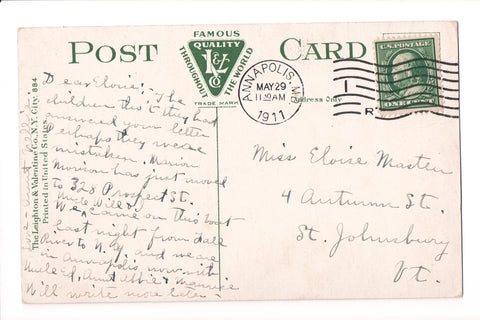 POST CARD
FAMOUS
QUALITY
L&V Co
THROUGHOUT THE WORLD
TRADE MARK
ANNAPOLIS, MD.
MAY 29
11 30 AM
1911
Address Only
U.S. POSTAGE
ONE CENT
The Leighton & Valentine Co., N.Y. City. 884
Printed in United States.
Dear Eloise: The
children tho't they had
answered your letter
Perhaps they were
mistaken. Marion
Morison has just moved
to 328 Prospect St.
Uncle Will &
We came on this boat
last night from Fall
River to N.Y. and we are
in Annapolis now with
Uncle Ed, Aunt Abbie & Maurice
Will write more later -
Miss Eloise Masten
4 Autumn St.
St. Johnsbury
Vt.